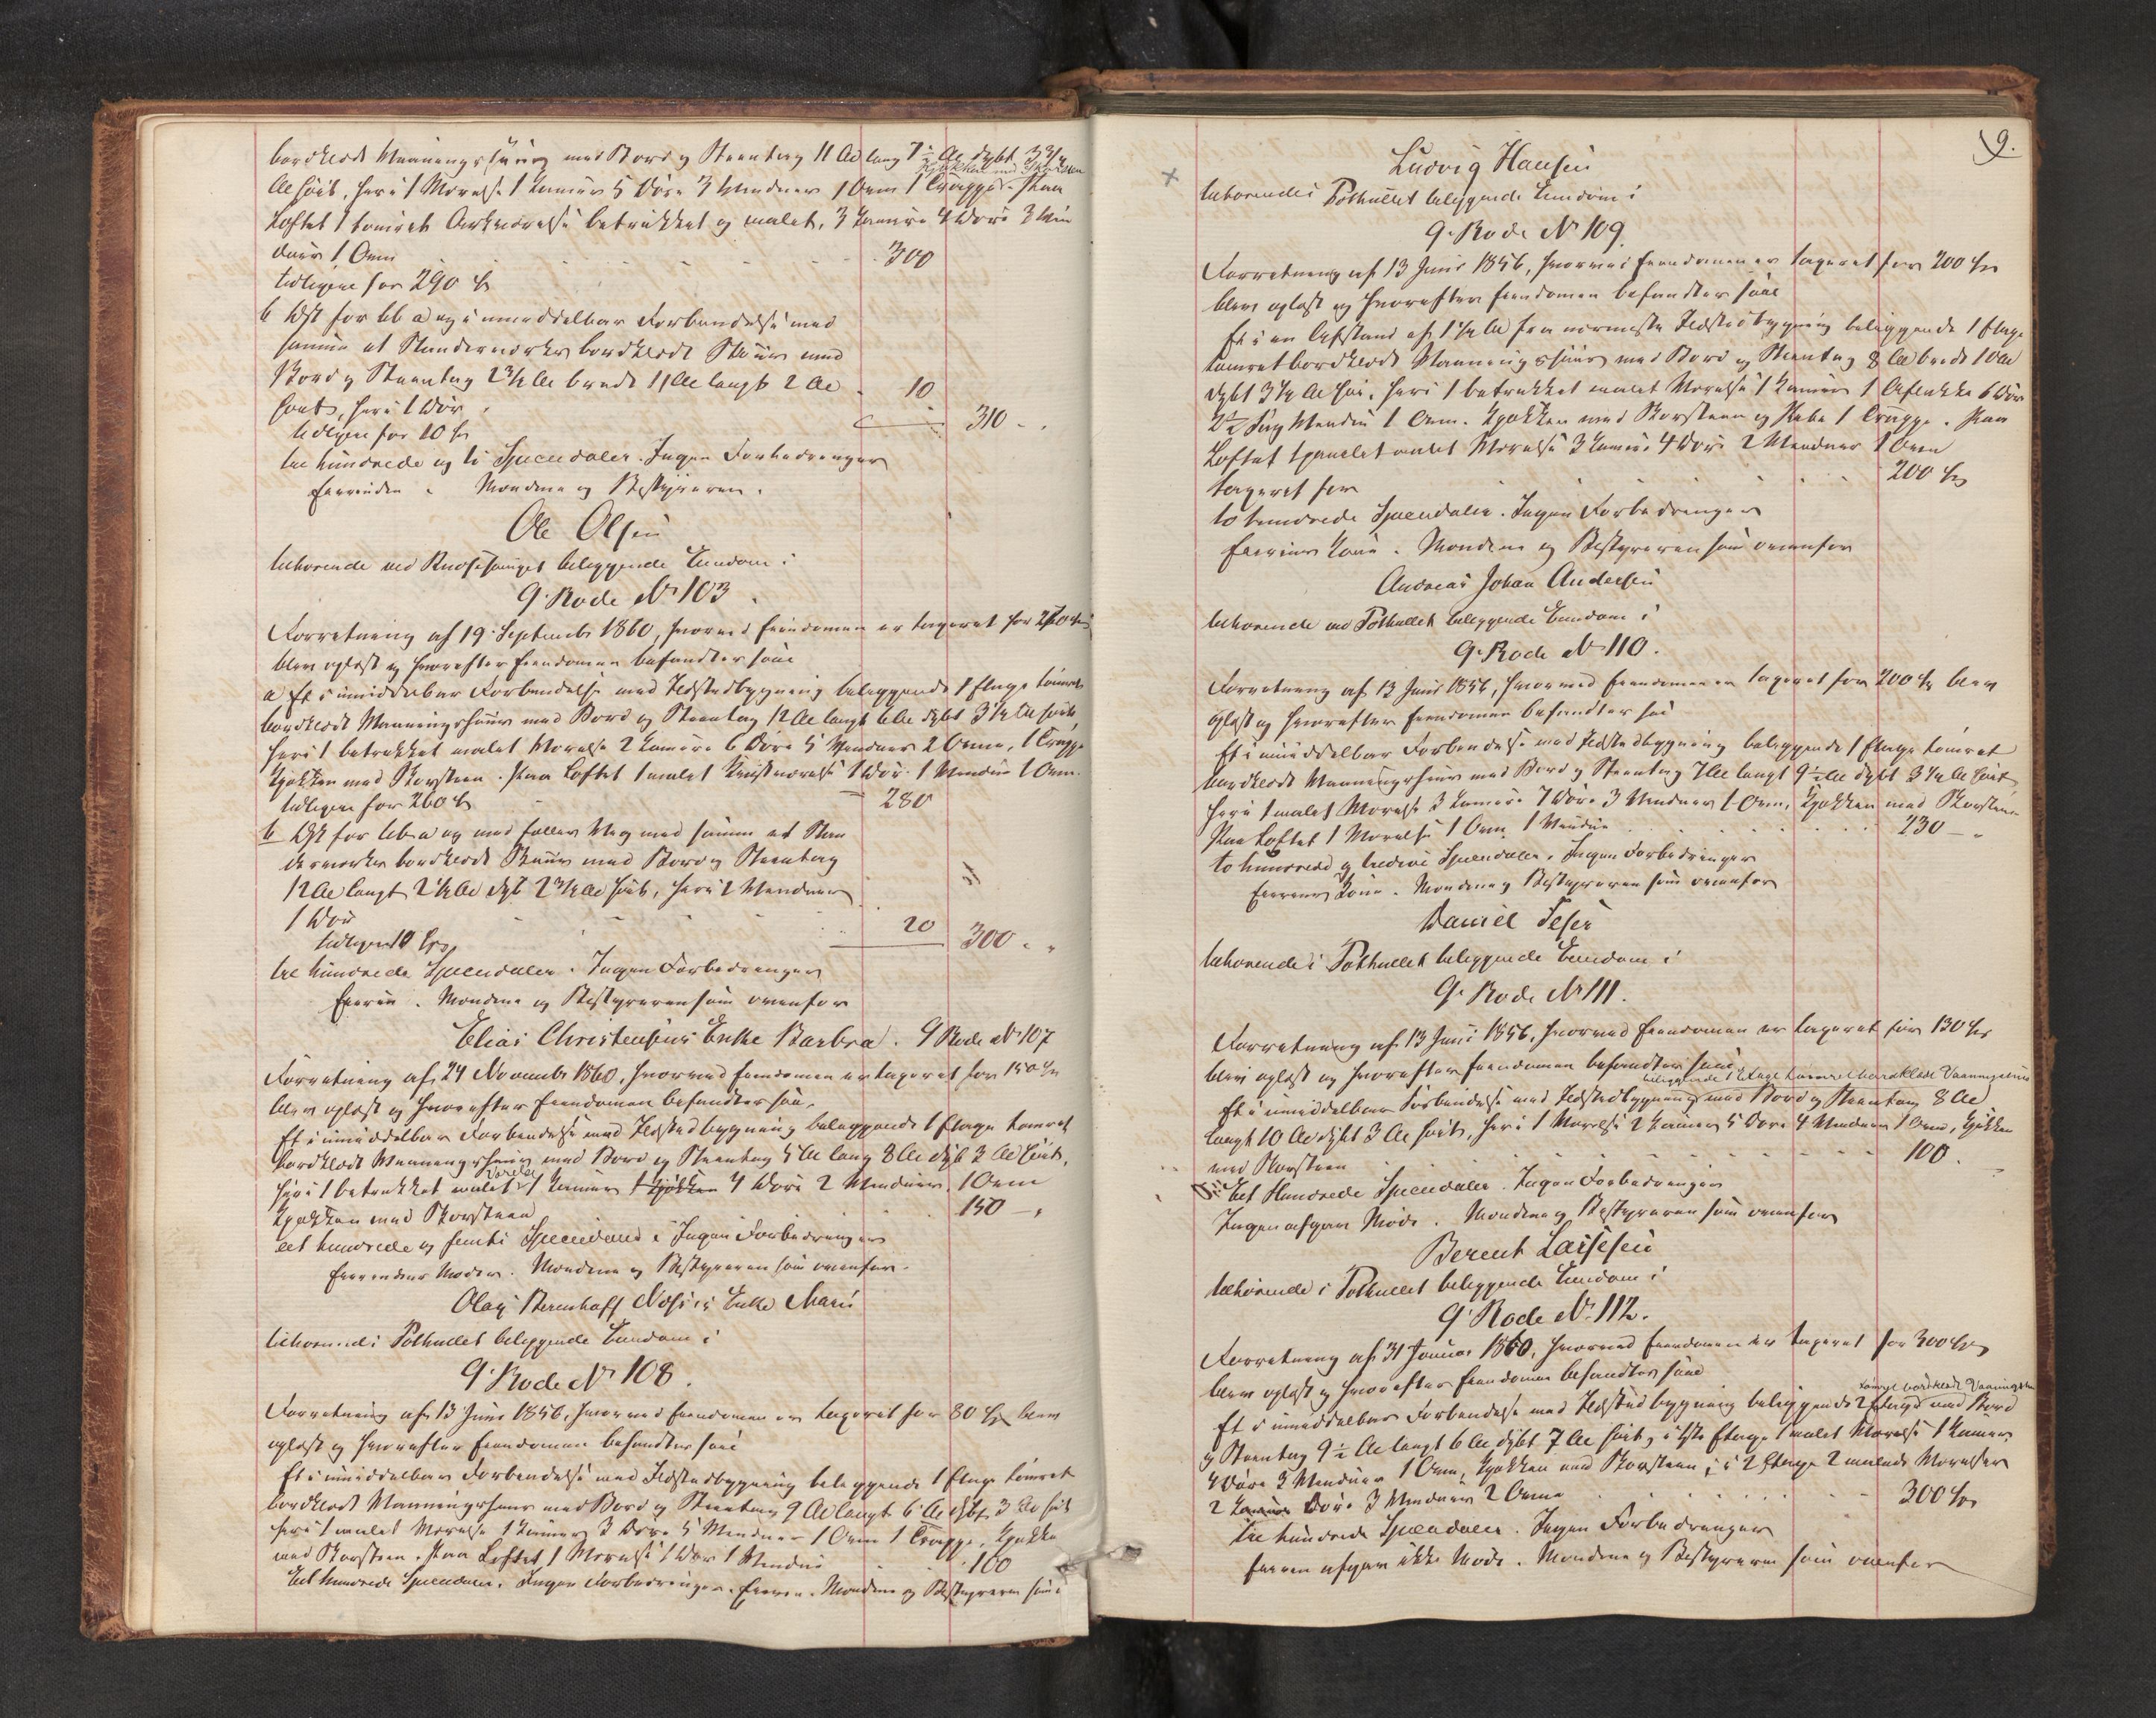 bordklædt Vaaningshuus med Bord og Steentag 11 Al lang 7 1/2 Al dybt 3 3/4
Kjøkken med Skorsteen
Al høit, heri 1 Værelse 1 Kammer 5 Døre 3 Vinduer 1 Ovn 1 Trappe. Paa
Loftet 1 tømret Arkværelse betrukket og malet, 3 Kamre 4 Døre 3 Vin
duer 1 Ovn 300
tidligere for 290 Spd
b Vest for Lb a og i umiddelbar Forbindelse med
samme et Stænderværkes bordklædt Skuur med
Bord og Steentag 2 3/4 Al bredt 11 Al langt 2 Al
høit, heri 1 Dør 10
tidligere for 10 Spd 310 - "
tre hundrede og ti Speciedaler. Ingen Forbedringer
Eierinden. Mændene og Bestyreren.
Ole Olsen
tilhørende ved beliggende Eiendom i
9. Rode No 103
Forretning af 19 September 1860, hvorved Eiendommen er taxeret for 270 Spd
blev oplæst og hvorefter Eiendommen befandtes saae
a Et i umiddelbar Forbindelse med Ildstedbygning beliggende 1 Etage tømret
bordklædt Vaaningshuus med Bord og Steentag 12 Al langt 6 Al dybt 3 1/2 Al høit
heri 1 betrukket malet Værelse 2 Kamre 6 Døre 5 Vinduer 2 Ovne, 1 Trappe
Kjøkken med Skorsteen. Paa Loftet 1 malet Kvistværelse 1 Dør 1 Vindue 1 Ovn.
tidligere for 260 Spd 280
b Vest for Lb a og med fælles Væg med samme et Stæn
derværkes bordklædt Skuur med Bord og Steentag
12 Al langt 2 1/2 Al dybt 2 3/4 Al høit, heri 2 Vinduer
1 Dør 20
tidligere 10 Spd 300 - "
tre hundrede Speciedaler. Ingen Forbedringer
Eieren. Mændene og Bestyreren som ovenfor
Elias Christensens Enke Barbra. 9 Rode No 107
Forretning af 24 November 1860, hvorved Eiendommen er taxeret for 150 Spd
blev oplæst og hvorefter Eiendommen befandtes saae.
Et i umiddelbar Forbindelse med Ildstedbygning beliggende 1 Etage tømret
bordklædt Vaaningshuus med Bord og Steentag 5 Al lang 8 Al dyb 3 Al høit,
heri 1 betrukket malet Værelse 1 Kammer 1 Kjøkken 4 Døre 2 Vinduer, 1 Ovn
Kjøkken med Skorsteen 150 - "
eet hundrede og femti Speciedaler. Ingen Forbedringer
Eierindens Moder. Mændene og Bestyreren som ovenfor.
Enke Marie
tilhørende i Pothullet beliggende Eiendom i
9. Rode No 108.
Forretning af 13 Juni 1856, hvorved Eiendommen er taxeret for 80 Spd blev
oplæst og hvorefter Eiendommen befandtes saae
Et i umiddelbar Forbindelse med Ildstedbygning beliggende 1 Etage tømret
bordklædt Vaaningshuus med Bord og Steentag 9 Al langt 6 Al dybt 3 Al høit
heri 1 malet Værelse 1 Kammer 3 Døre 5 Vinduer 1 Ovn 1 Trappe, Kjøkken
med Skorsteen. Paa Loftet 1 Værelse 1 Dør 1 Vindue 100
Eet hundrede Speciedaler. Ingen Forbedringer. Eieren. Mændene og Bestyreren som
9.
Ludvig Hansen
tilhørende i Pothullet beliggende Eiendom i
9. Rode No 109.
Forretning af 13 Juni 1856, hvorved Eiendommen er taxeret for 200 Spd
blev oplæst og hvorefter Eiendommen befandtes saae
Et i en Afstand af 1 1/2 Al fra nærmeste Ildstedbygning beliggende 1 Etage
tømret bordklædt Vaaningshuus med Bord og Steentag 8 Al bredt 10 Al
dybt 3 1/2 Al høi, heri 1 betrukket malet Værelse 1 Kammer 1 Aflukke 6 Døre
Fag Vindue 1 Ovn. Kjøkken med Skorsteen og 1 Trappe. Paa
Loftet 1 panelet malet Værelse 3 Kamre 4 Døre 2 Vinduer 1 Ovn
taxeret for 200 Spd
to hundrede Speciedaler. Ingen Forbedringer
Eierens Kone. Mændene og Bestyreren som ovenfor
Andreas Johan Andersen
tilhørende ved Pothullet beliggende Eiendom i
9. Rode No 110.
Forretning af 13 Juni 1856, hvorved Eiendommen er taxeret for 200 Spd blev
oplæst og hvorefter Eiendommen befandtes saa
Et i umiddelbar Forbindelse med Ildstedbygning beliggende 1 Etage tømret
bordklædt Vaaningshuus med Bord og Steentag 7 Al langt 9 1/2 Al dybt 3 1/4 Al høit
heri 1 malet Værelse 3 Kamre 7 Døre 3 Vinduer 1 Ovn, Kjøkken med Skorsteen
Paa Loftet 1 Værelse 1 Ovn 1 Vindue 230 - "
to hundrede og tredive Speciedaler. Ingen Forbedringer
Eierens Kone. Mændene og Bestyreren som ovenfor
Daniel
tilhørende i Pothullet beliggende Eiendom i
9. Rode No 111.
Forretning af 13 Juni 1856, hvorved Eiendommen er taxeret for 130 Spd
blev oplæst og hvorefter Eiendommen befandtes saae
beliggende 1 Etage tømret bordklædt Vaaningshuus
Et i umiddelbar Forbindelse med Ildstedbygning med Bord og Steentag 8 Al
langt 10 Al dybt 3 Al høit, heri 1 Værelse 2 Kamre 5 Døre 4 Vinduer 1 Ovn, Kjøkken
med Skorsteen 100.
Eet Hundrede Speciedaler. Ingen Forbedringer
Ingen afgav Møde. Mændene og Bestyreren som ovenfor
Berent Lassesen
tilhørende i Pothullet beliggende Eiendom i
9. Rode No. 112.
Forretning af 31 Januar 1860, hvorved Eiendommen er taxeret for 300 Spd
blev oplæst og hvorefter Eiendommen befandtes saae
tømret bordklædt Vaaningshuus
Et i umiddelbar Forbindelse med Ildstedbygning beliggende 2 Etages med Bord
og Steentag 9 1/2 Al langt 6 Al dybt 7 Al høit, i 1ste Etage 1 malet Værelse 1 Kammer
4 Døre 3 Vinduer 1 Ovn, Kjøkken med Skorsteen; i 2 Etage 2 malede Værelser
2 Kamre Døre 3 Vinduer 2 Ovne 300 Spd
tre hundrede Speciedaler. Ingen Forbedringer
Eieren afgav ikke Møde. Mændene og Bestyreren som ovenfor